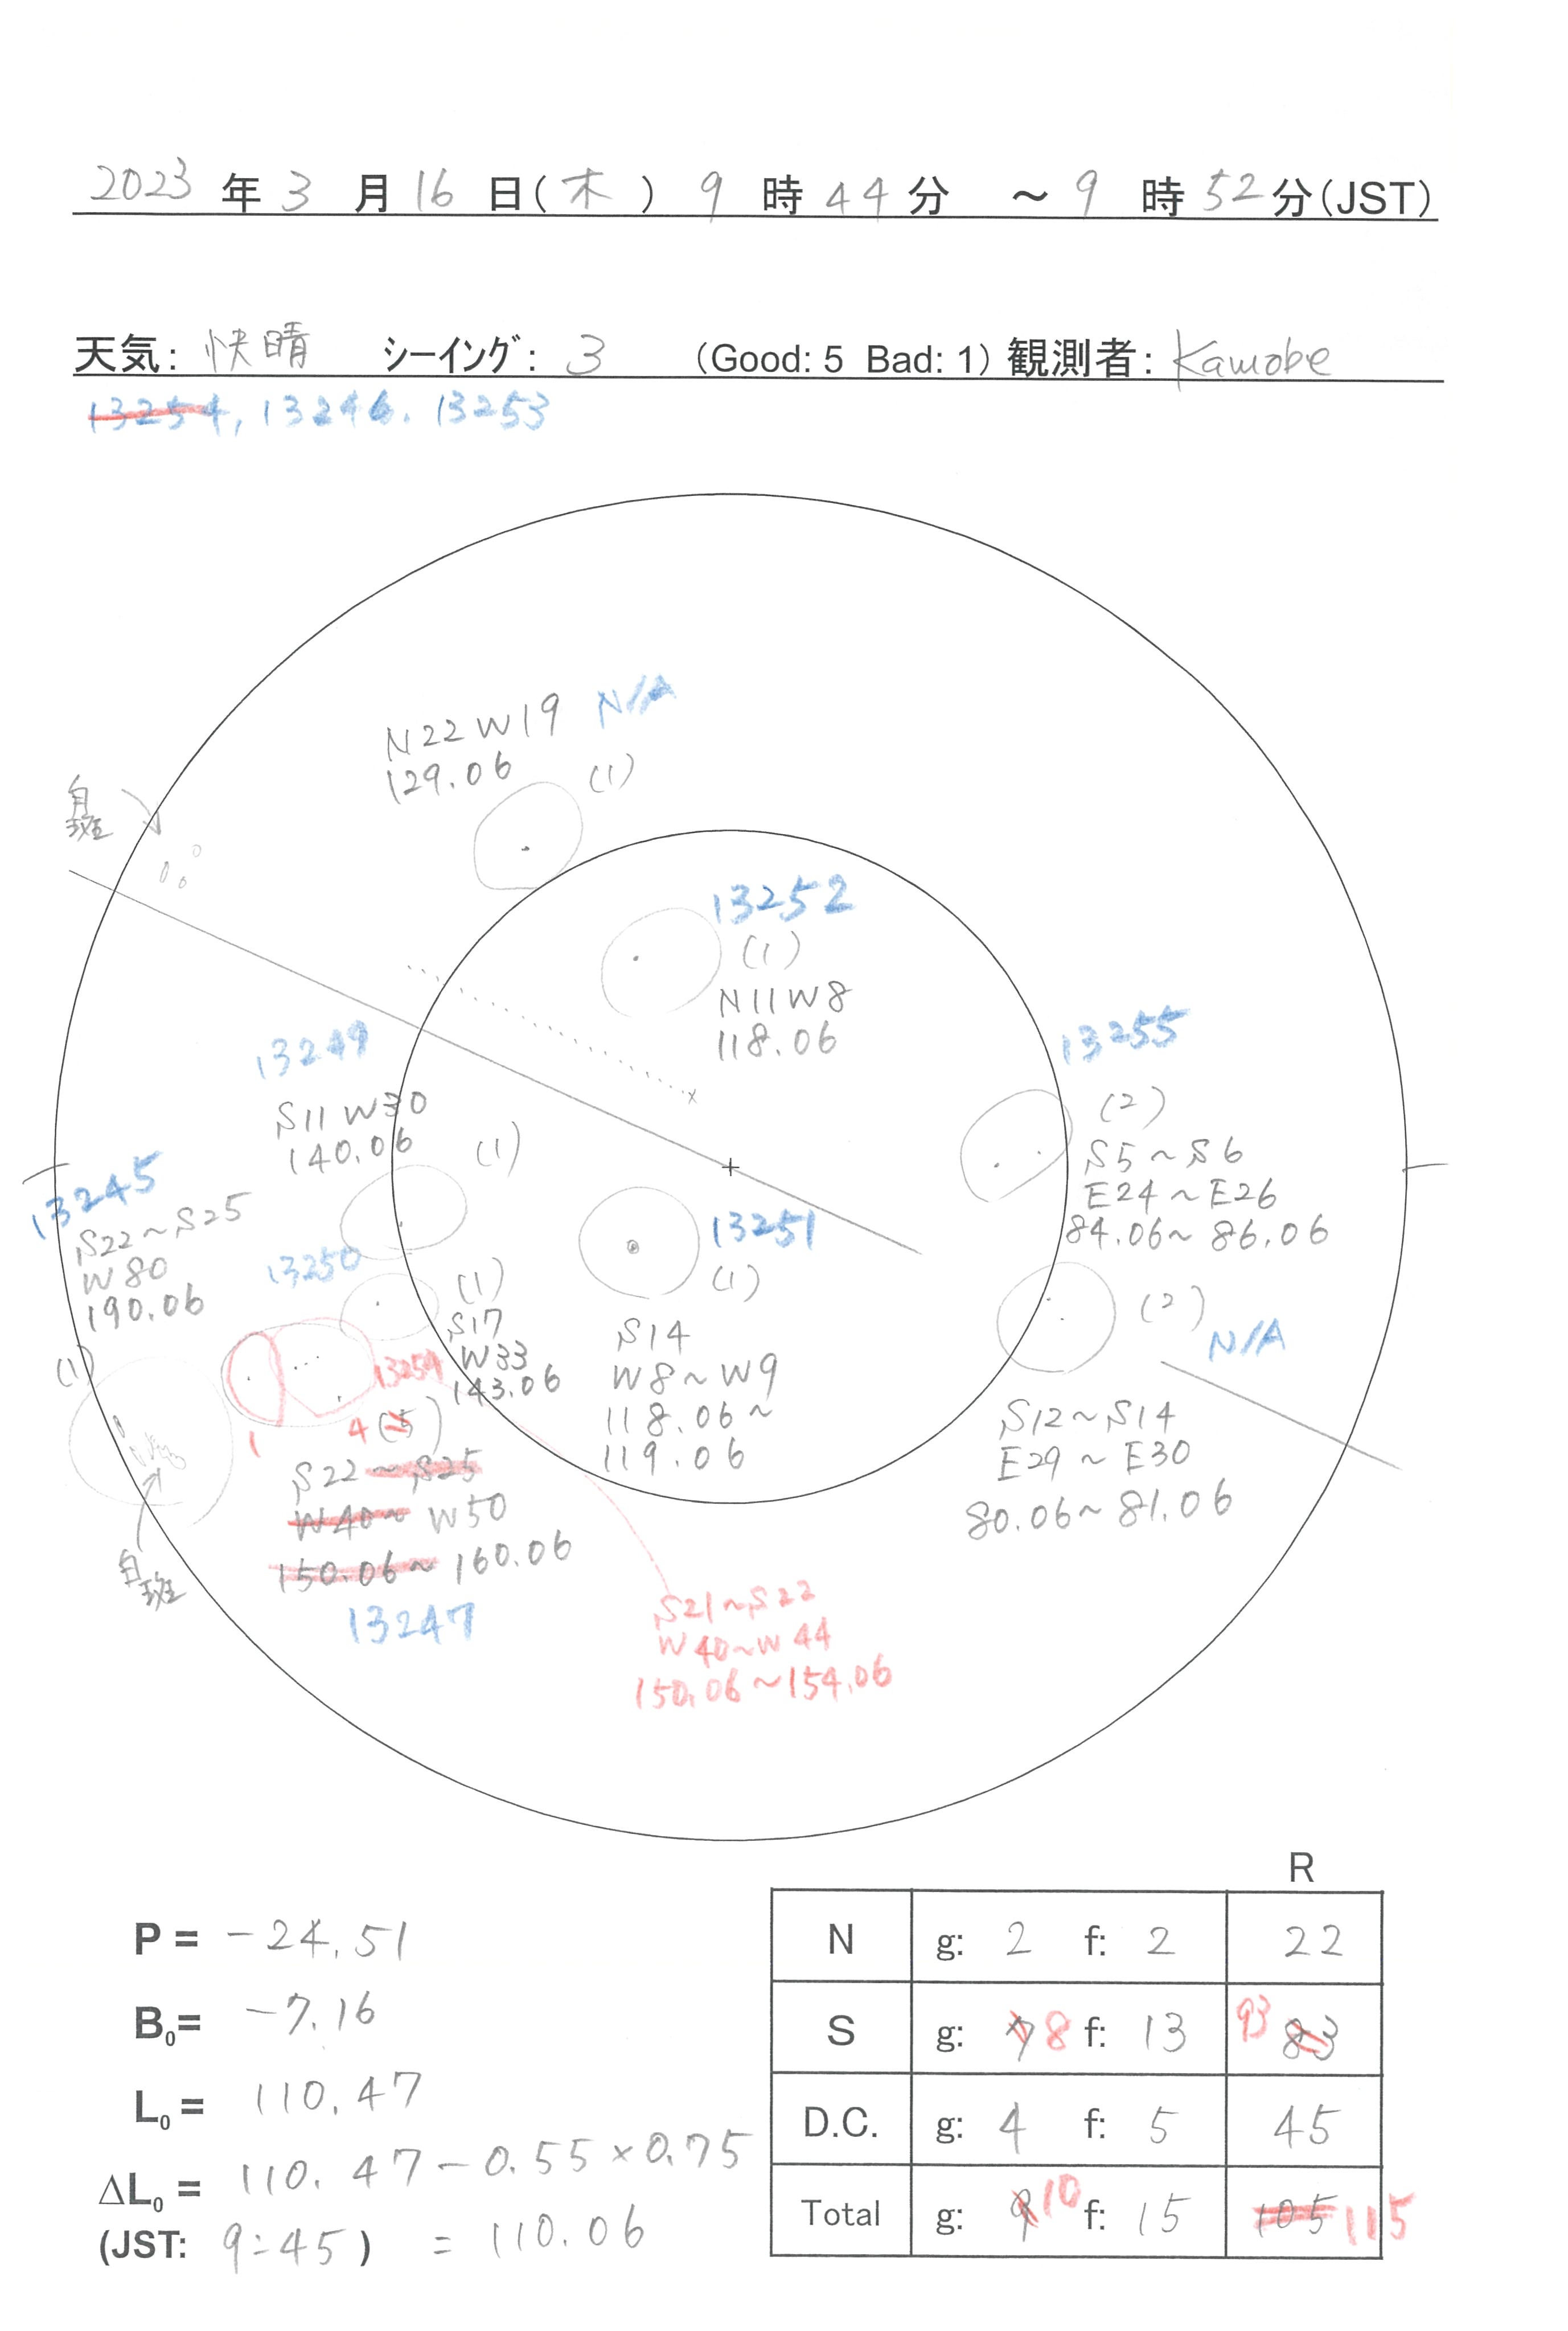 2023年3月16日(木)9時44分～9時52分(JST)
天気: 快晴 シーイング: 3 (Good: 5 Bad: 1) 観測者: Kamobe
13254, 13246. 13253
N22W19 N/A
129.06 (1)
白斑
13252
(1)
N11W8
118.06
13249
S11W30
140.06 (1)
13255
(2)
S5～S6
E24～E26
84.06～86.06
13245
S22～S25
W80
190.06
(1)
13250
(1)
S17
W33
143.06
13251
(1)
S14
W8～W9
118.06～
119.06
(2)
N/A
S12～S14
E29～E30
80.06～81.06
13254
1 4(5)
S22～S25
W40～W50
150.06～160.06
13247
白斑
S21～S22
W40～W44
150.06～154.06
R
P = -24.51
B₀= -7.16
L₀= 110.47
ΔL₀ = 110.47-0.55×0.75
(JST: 9:45) = 110.06
N g: 2 f: 2 22
S g: 7 8 f: 13 93 83
D.C. g: 4 f: 5 45
Total g: 9 10 f: 15 105 115